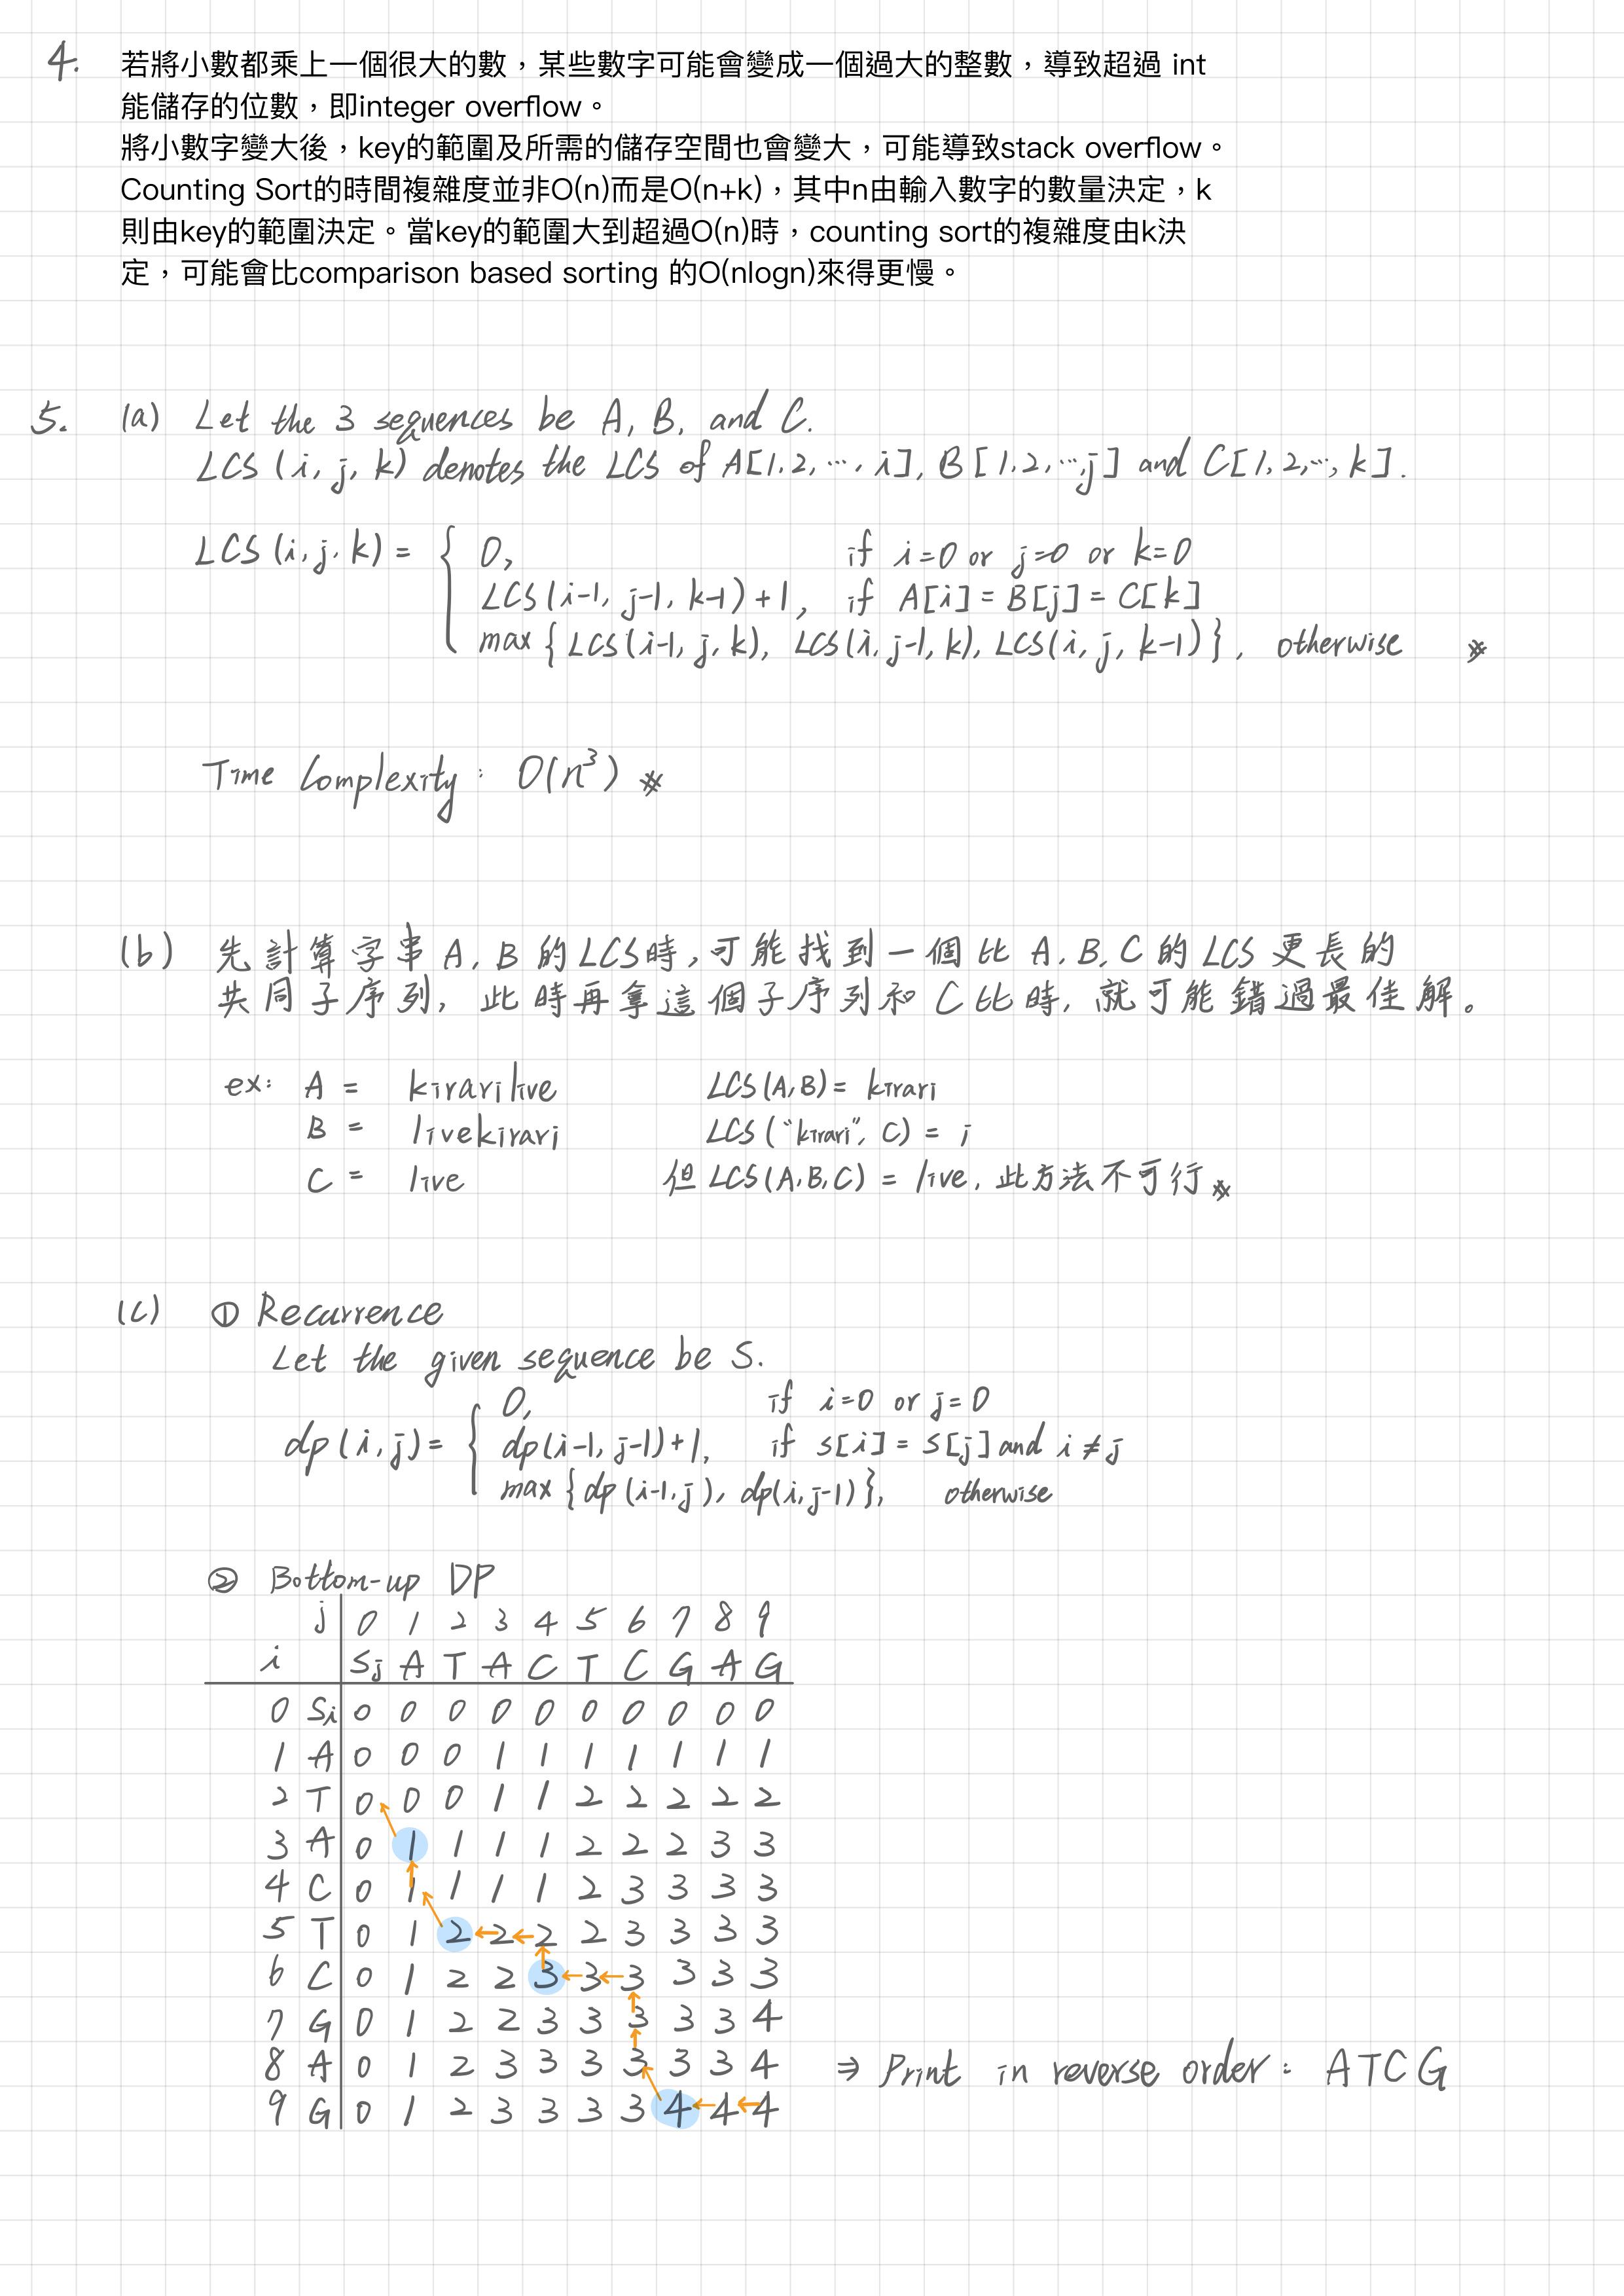 4. 若將小數都乘上一個很大的數，某些數字可能會變成一個過大的整數，導致超過 int
能儲存的位數，即integer overflow。
將小數字變大後，key的範圍及所需的儲存空間也會變大，可能導致stack overflow。
Counting Sort的時間複雜度並非O(n)而是O(n+k)，其中n由輸入數字的數量決定，k
則由key的範圍決定。當key的範圍大到超過O(n)時，counting sort的複雜度由k決
定，可能會比comparison based sorting 的O(nlogn)來得更慢。
5. (a) Let the 3 sequences be A, B, and C.
LCS (i, j, k) denotes the LCS of A[1, 2, ⋯, i], B[1, 2, ⋯, j] and C[1, 2, ⋯, k].
LCS (i, j, k) = { 0, if i=0 or j=0 or k=0
LCS(i-1, j-1, k-1)+1, if A[i] = B[j] = C[k]
max { LCS(i-1, j, k), LCS(i, j-1, k), LCS(i, j, k-1) }, otherwise ※
Time Complexity: O(n³) ※
(b) 先計算字串 A, B 的 LCS時, 可能找到一個比 A, B, C 的 LCS 更長的
共同子序列, 此時再拿這個子序列和 C 比時, 就可能錯過最佳解。
ex: A = kirarilive LCS(A, B) = kirari
B = livekirari LCS("kirari", C) = i
C = live 但 LCS(A, B, C) = live, 此方法不可行 ※
(c) ① Recurrence
Let the given sequence be S.
dp(i, j) = { 0, if i=0 or j=0
dp(i-1, j-1)+1, if s[i] = s[j] and i ≠ j
max { dp(i-1, j), dp(i, j-1) }, otherwise
② Bottom-up DP
j 0 1 2 3 4 5 6 7 8 9
i Sj A T A C T C G A G
0 Si 0 0 0 0 0 0 0 0 0 0
1 A 0 0 0 1 1 1 1 1 1 1
2 T 0 0 0 1 1 2 2 2 2 2
3 A 0 1 1 1 1 2 2 2 3 3
4 C 0 1 1 1 1 2 3 3 3 3
5 T 0 1 2 2 2 2 3 3 3 3
6 C 0 1 2 2 3 3 3 3 3 3
7 G 0 1 2 2 3 3 3 3 3 4
8 A 0 1 2 3 3 3 3 3 3 4 ⇒ Print in reverse order: ATCG
9 G 0 1 2 3 3 3 3 4 4 4